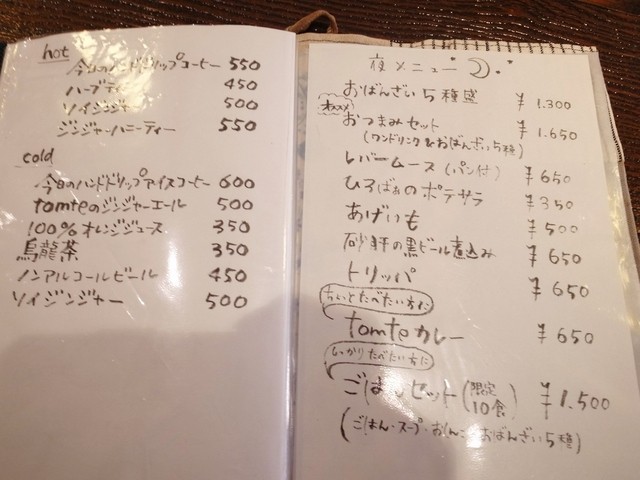 hot
今日のハンドドリップコーヒー 550
ハーブティー 450
ソイジンジャー 500
ジンジャーハニーティー 550
cold
今日のハンドドリップアイスコーヒー 600
tomteのジンジャーエール 500
100%オレンジジュース 350
烏龍茶 350
ノンアルコールビール 450
ソイジンジャー 500
夜メニュー
おばんざい5種盛 ¥1.300
オススメ
おつまみセット ¥1.650
(ワンドリンク&おばんざい5種)
レバームース(パン付) ¥650
ひろばぁのポテサラ ¥350
あげいも ¥500
砂肝の黒ビール煮込み ¥650
トリッパ ¥650
ちょいとたべたい方に
tomteカレー ¥650
しっかりたべたい方に
ごはんセット(限定10食) ¥1.500
(ごはん・スープ・おしんこ・おばんざい5種)